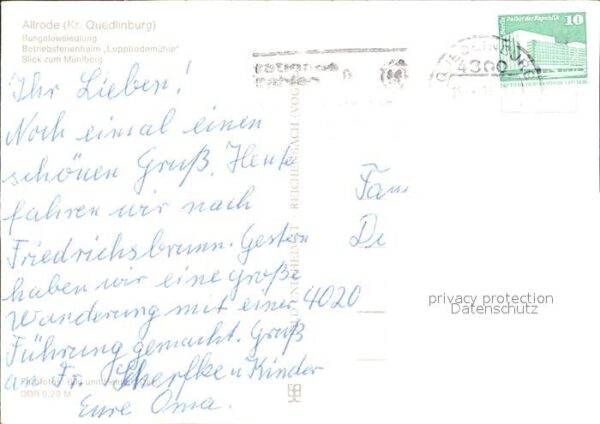 Allrode (Kr. Quedlinburg)
Bungalowsiedlung
Betriebsferienheim „Luppbodemühle"
Blick zum Mühlberg
Ihr Lieben!
Noch einmal einen
schönen Gruß. Heute
fahren wir nach
Friedrichsbrunn. Gestern
haben wir eine große
Wanderung mit einer
Führung gemacht. Gruß
an Fr. Scherfke u Kinder
Eure Oma.
DDR 0,20 M
REICHENBACH (VOG
Fam
Di
4020
QUEDLINBURG
4300
10
privacy protection
Datenschutz